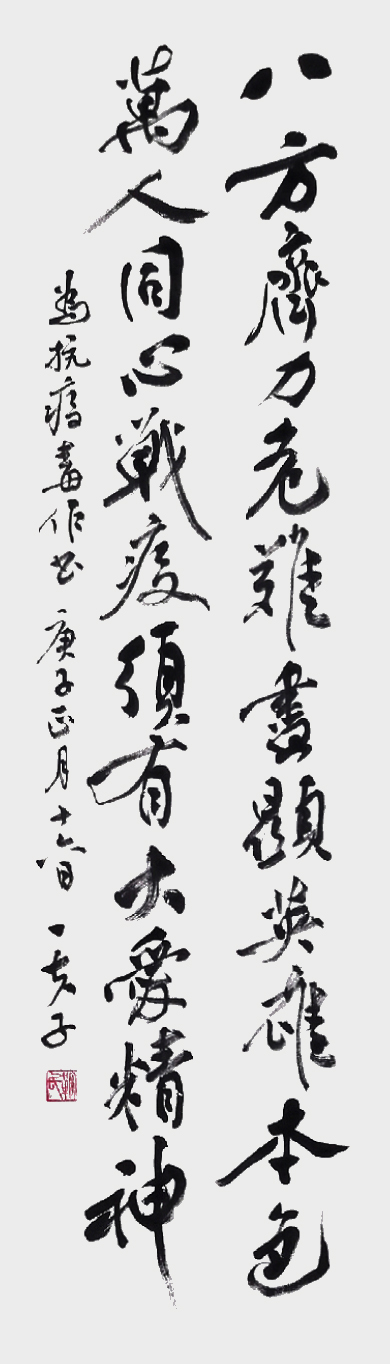 八方齊力危難盡顯英雄本色
萬人同心戰疫須有大愛精神
為抗疫毒作书 庚子正月十六日 一 子